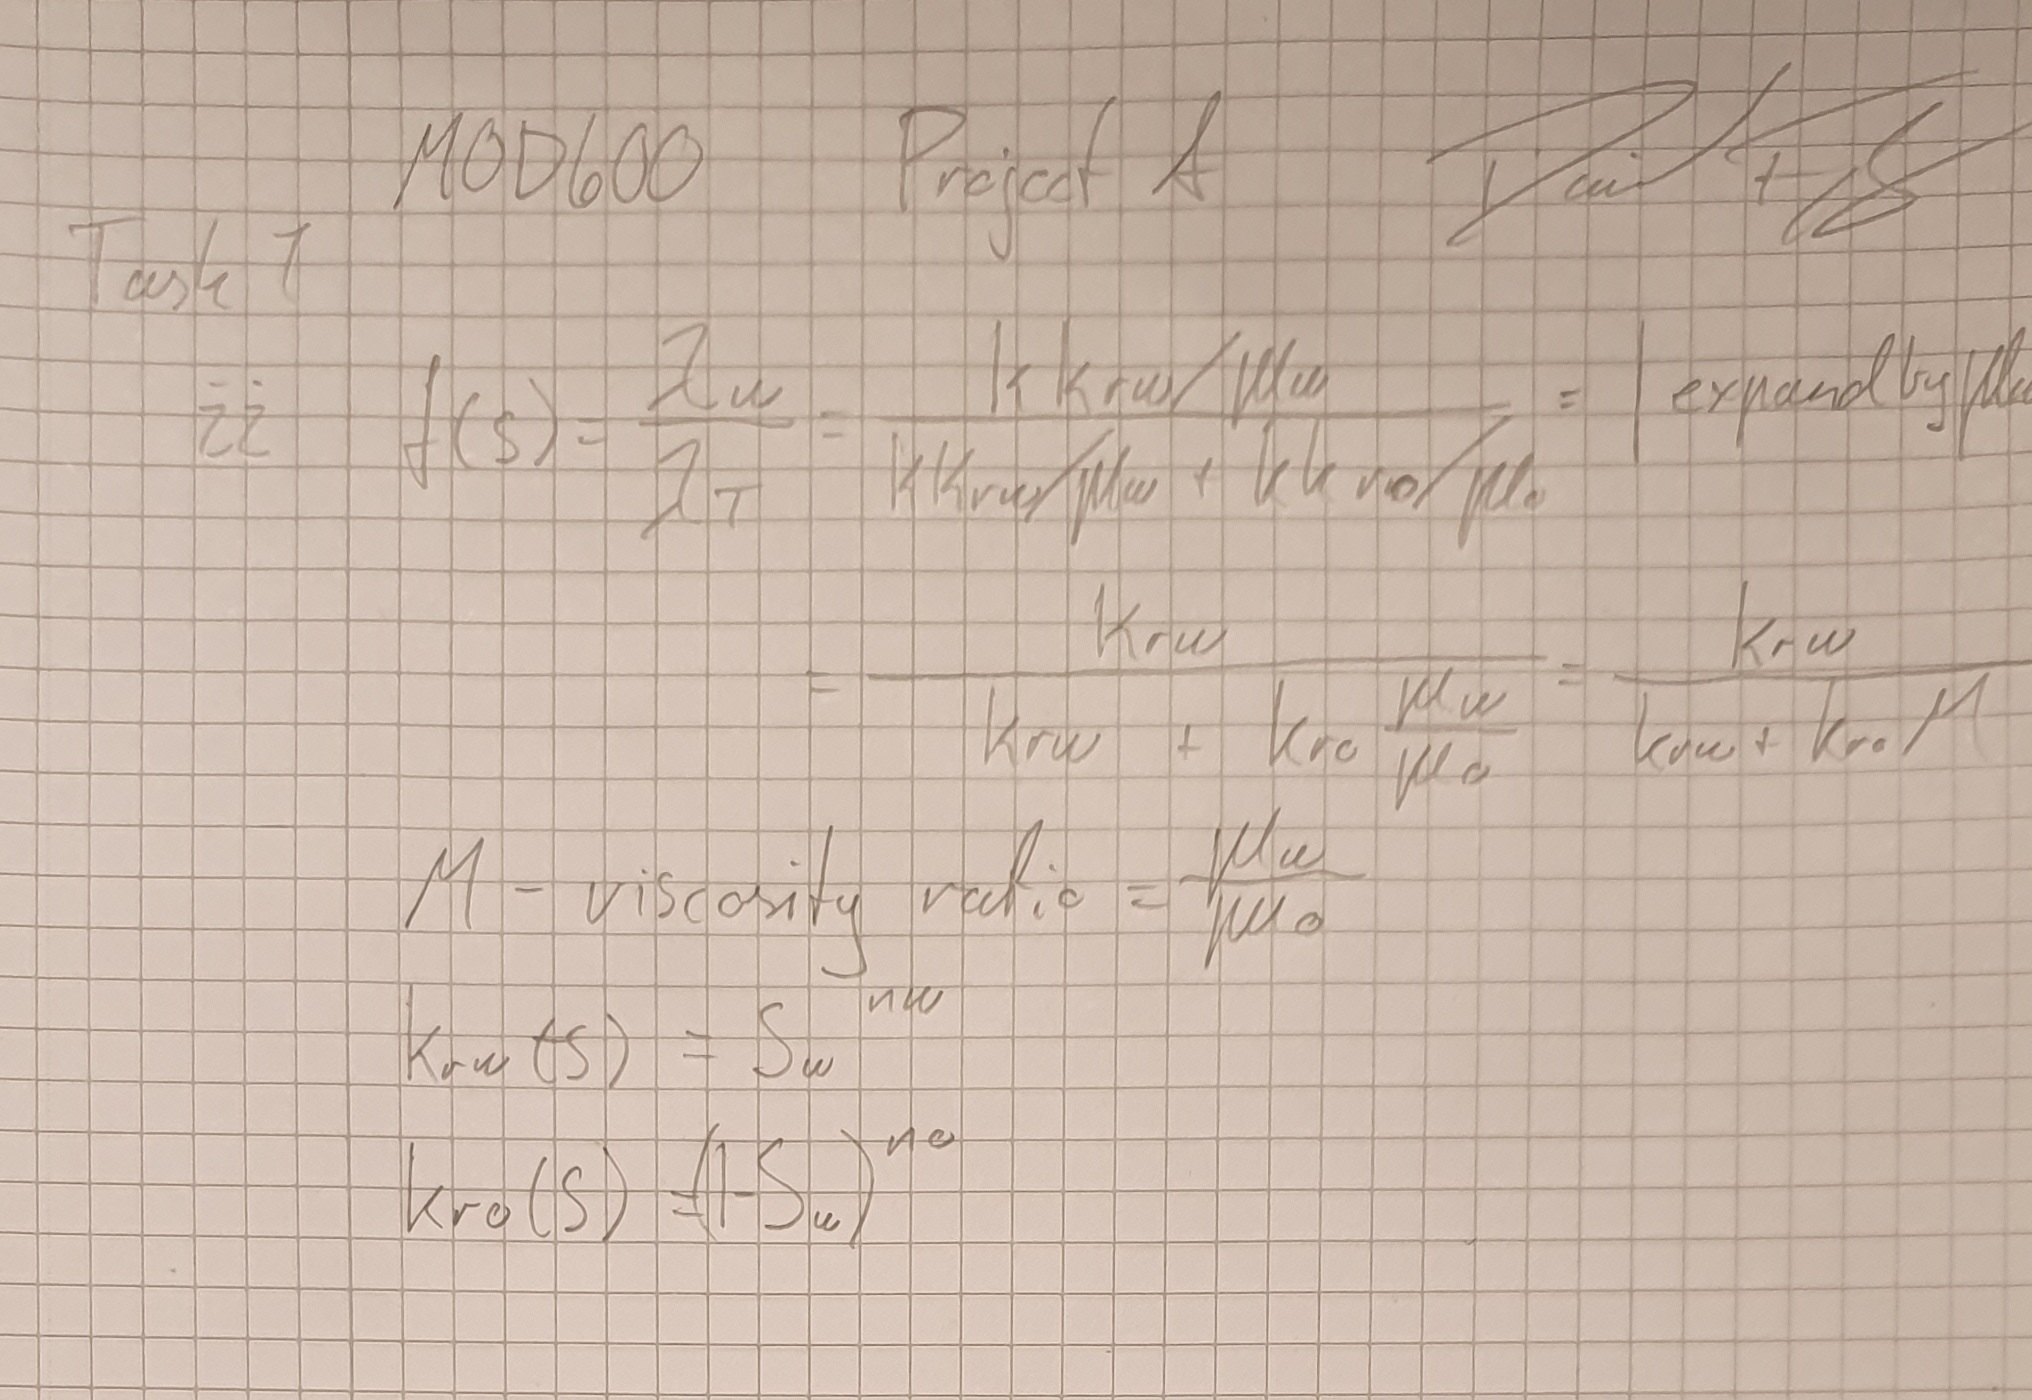 MOD600 Project A
Task 1
ii f(s) = λw / λT = (k krw/μw) / (k krw/μw + k kro/μo) = | expand by μw
= krw / (krw + kro μw/μo) = krw / (krw + kro M)
M - viscosity ratio = μw/μo
krw(S) = Sw^nw
kro(S) = (1-Sw)^no